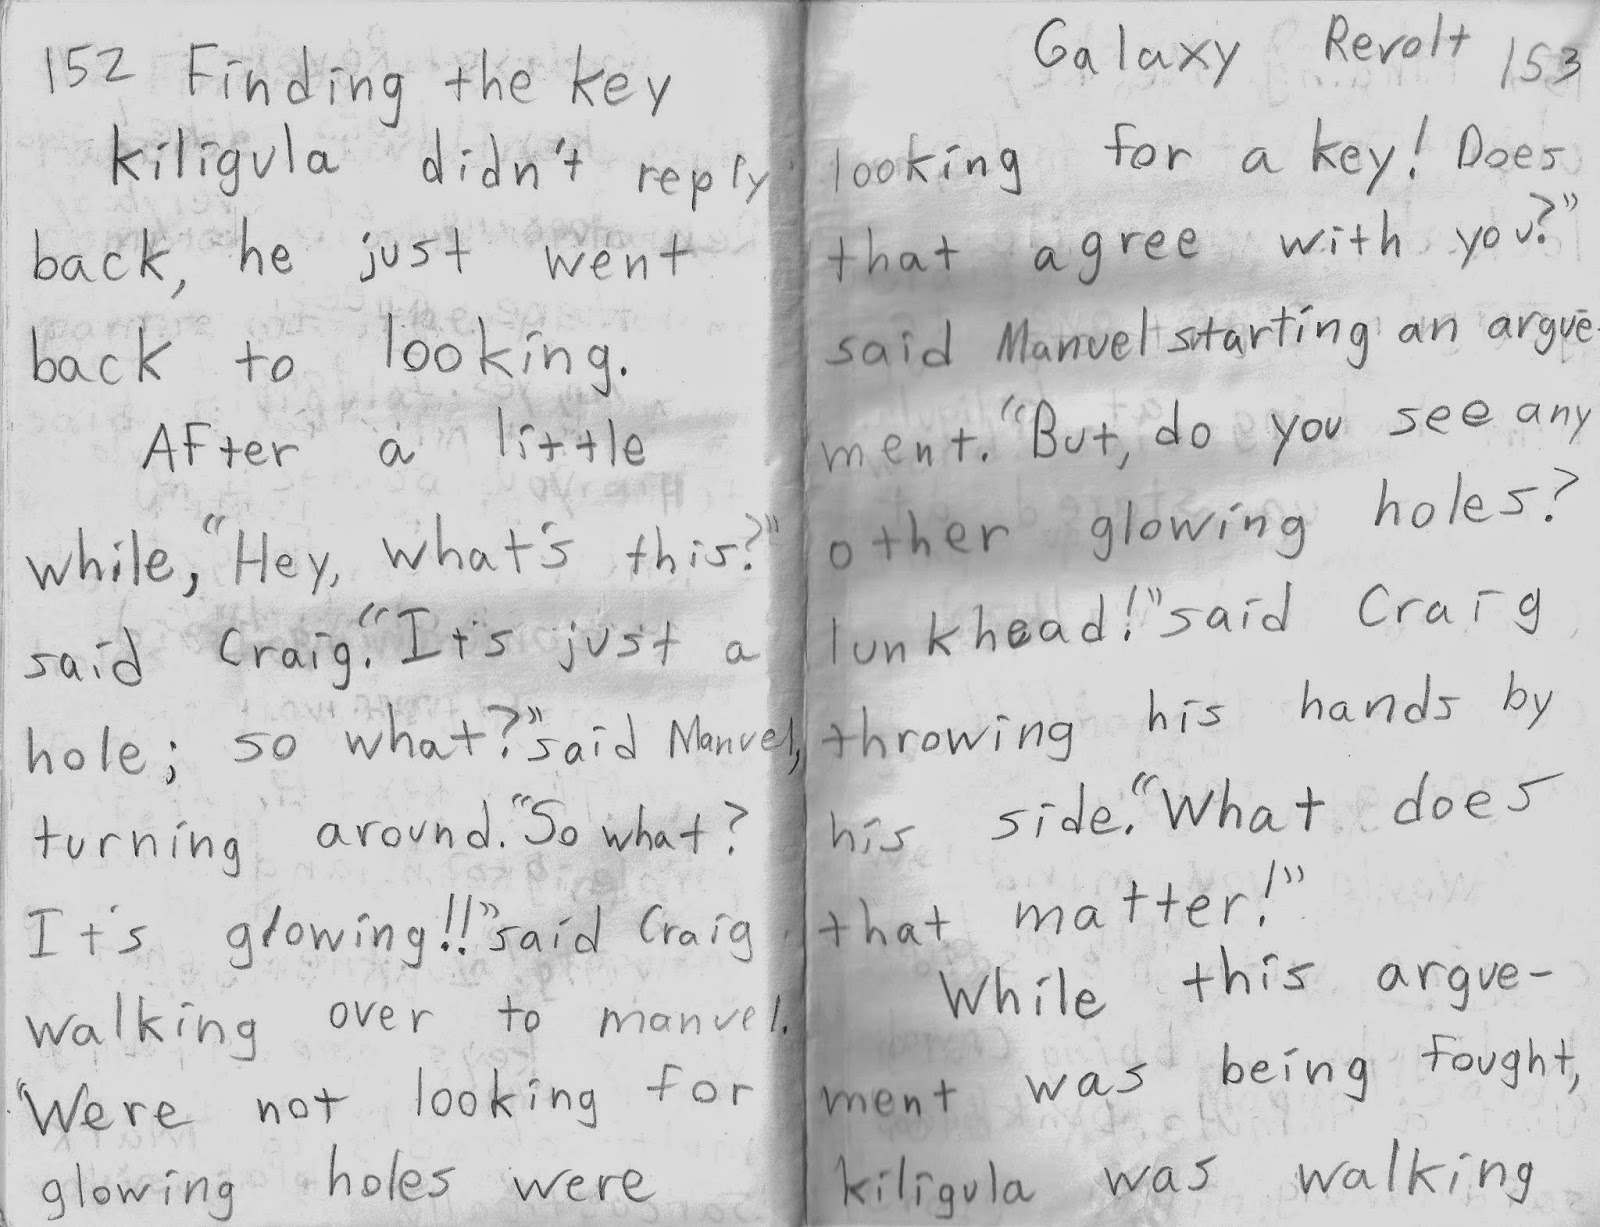 152 Finding the key
Kiligula didn't reply
back, he just went
back to looking.
After a little
while, "Hey, what's this?"
said Craig. "It's just a
hole; so what?" said Manuel,
turning around. "So what?
It's glowing!!" said Craig
walking over to manuel.
"Were not looking for
glowing holes were
Galaxy Revolt 153
looking for a key! Does
that agree with you?"
said Manuel starting an argue-
ment. "But, do you see any
other glowing holes?
lunkhead!" said Craig
throwing his hands by
his side. "What does
that matter!"
While this argue-
ment was being fought,
kiligula was walking